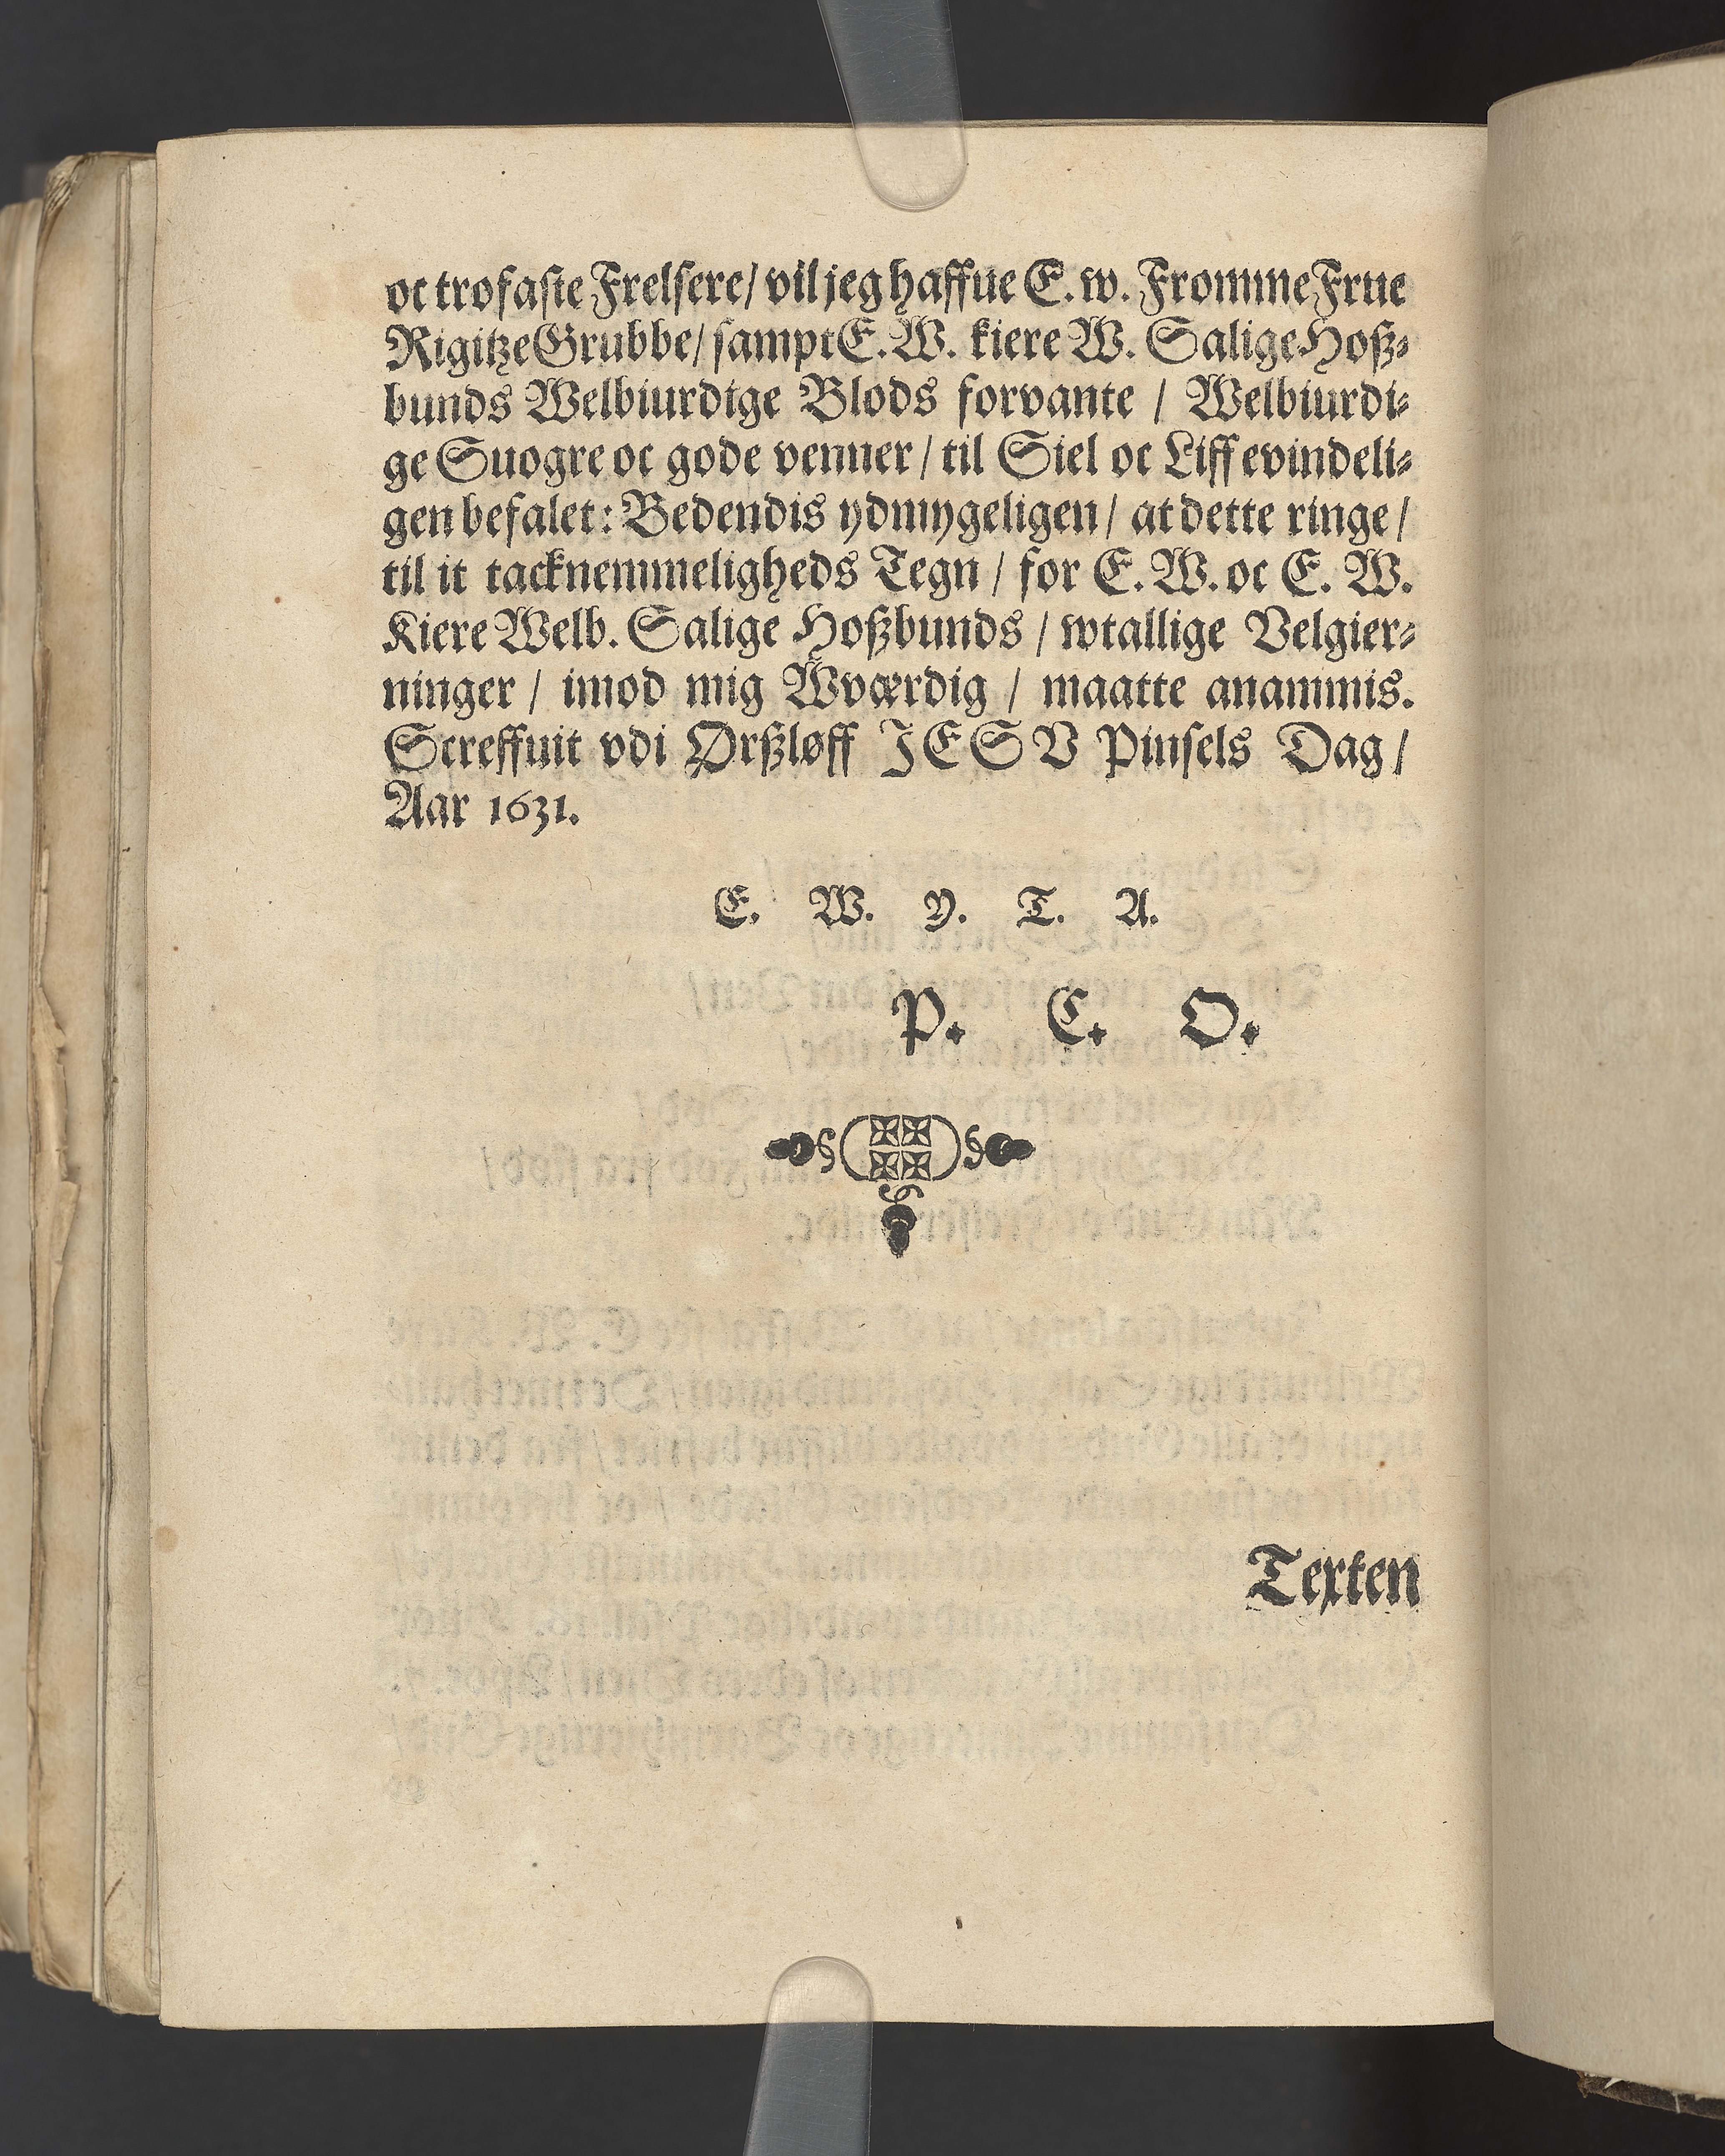 oc trofaste Frelsere/ vil jeg haffue E. w. Fromme Frue
Rigitze Grubbe/ sampt E. W. kiere W. Salige Hoß-
bunds Welbiurdige Blods forvante / Welbiurdi-
ge Suogre oc gode venner / til Siel oc Liff evindeli-
gen befalet: Bedendis ydmygeligen / at dette ringe /
til it tacknemmeligheds Tegn / for E. W. oc E. W.
Kiere Welb. Salige Hoßbunds / wtallige Velgier-
ninger / imod mig Wværdig / maatte anammis.
Screffuit vdi Ørßløff JESV Pinsels Dag /
Aar 1631.
E. W. Y. T. A.
P. C. O.
Texten